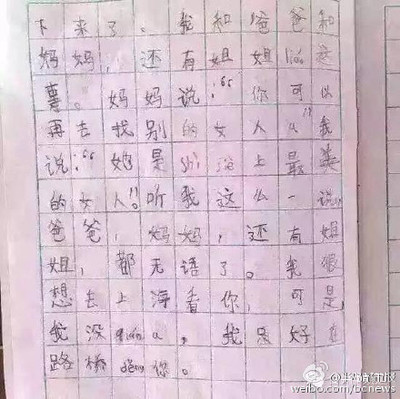 下来了。我和爸爸和
妈妈，还有姐姐liáo这
事。妈妈说：“你可以
再去找别的女人”我
说：“她是shì 上最美
的女人”！听我这么一说，
爸爸，妈妈，还有姐
姐，都无语了。我很
想去上海看你，可是，
我没qián，我只好在
路桥děng你。
weibo.com/ocnews